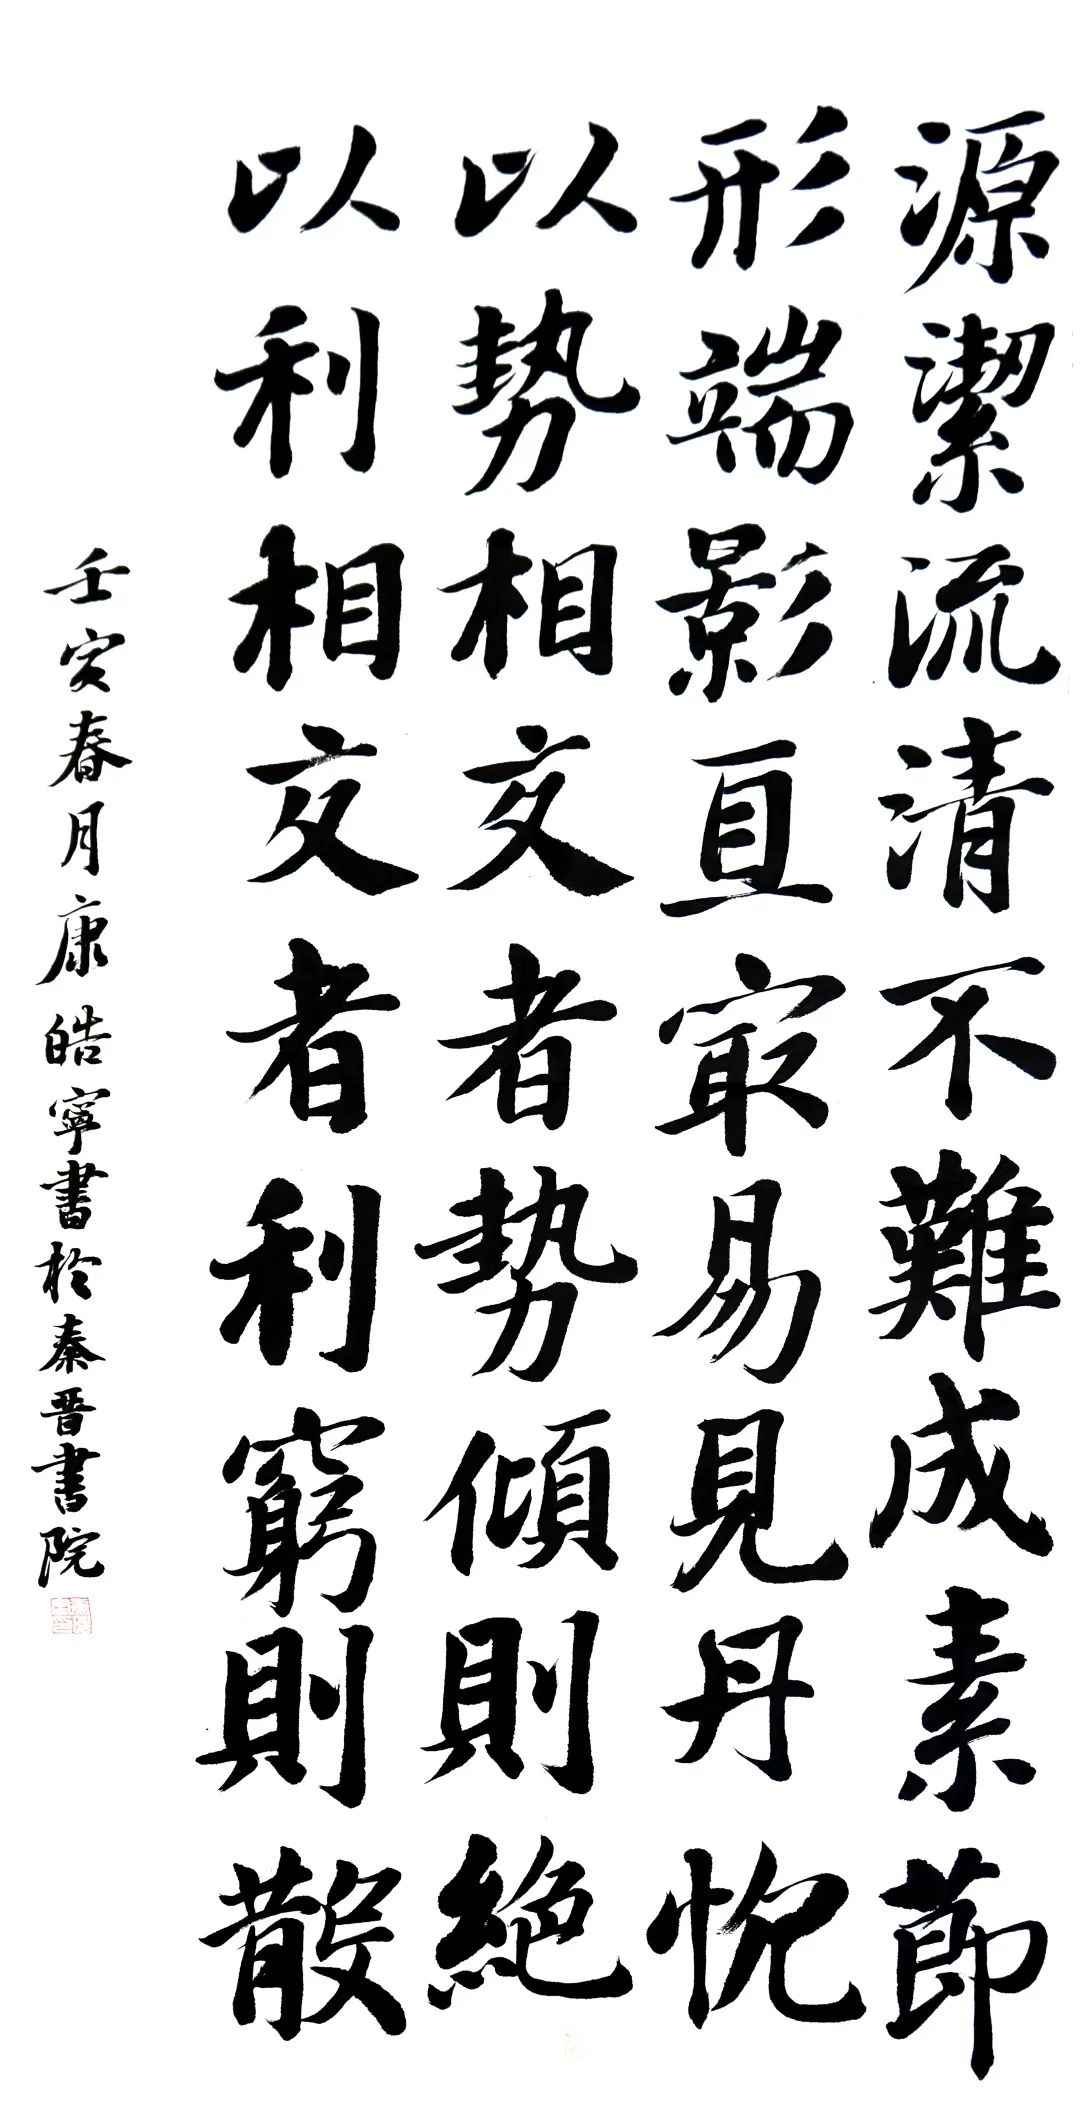 源潔流清不難成素節
形端影直㝡易見丹忱
以勢相交者勢傾則絶
以利相交者利窮則散
壬寅春月康皓寧書於秦晋書院